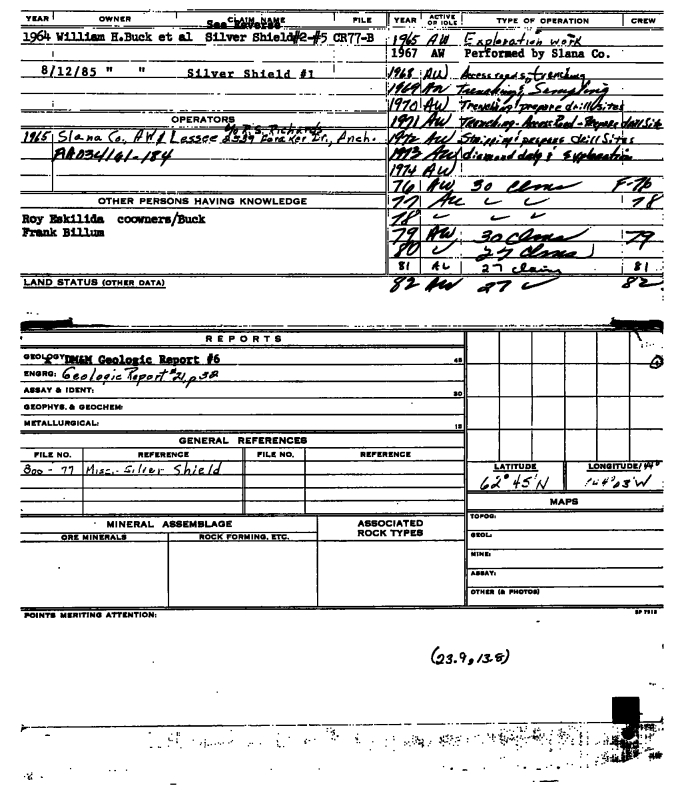 YEAR OWNER CLAIM NAME FILE
See Reverse
1964 William H.Buck et al Silver Shield#2-#5 CR77-B
8/12/85 " " Silver Shield #1
OPERATORS
c/o R.S. Richards
1965 Slana Co., AW & Lessee 2339 Foraker Dr., Anch.
AA034161-184
OTHER PERSONS HAVING KNOWLEDGE
Roy Eskilida coowners/Buck
Frank Billum
LAND STATUS (OTHER DATA)
YEAR ACTIVE OR IDLE TYPE OF OPERATION CREW
1965 AW Exploration work
1967 AW Performed by Slana Co.
1968 AW Access roads, trenching
1969 AW Trenching & Sampling
1970 AW Trenching & prepare drill sites
1971 AW Trenching-Access Road-Prepare drill Site
1972 AW Stripping & prepare drill Sites
1973 AW diamond & Exploration
1974 AW
76 AW 30 clms F-76
77 AW ✓ ✓ 78
78 ✓ ✓
79 AW 30 clms 79
80 ✓ 27 clms
81 AW 27 claims 81
82 AW 27 ✓ 82
REPORTS
GEOLOGY DM&M Geologic Report #6
ENGRG: Geologic Report #21, p32
ASSAY & IDENT:
GEOPHYS. & GEOCHEM:
METALLURGICAL:
GENERAL REFERENCES
FILE NO. REFERENCE FILE NO. REFERENCE
800-77 Misc. Silver Shield
MINERAL ASSEMBLAGE
ORE MINERALS ROCK FORMING, ETC.
ASSOCIATED ROCK TYPES
LATITUDE LONGITUDE 144°
62°45'N 144°03'W
MAPS
TOPOG:
GEOL:
MINE:
ASSAY:
OTHER (& PHOTOS)
POINTS MERITING ATTENTION:
(23.9, 13.8)